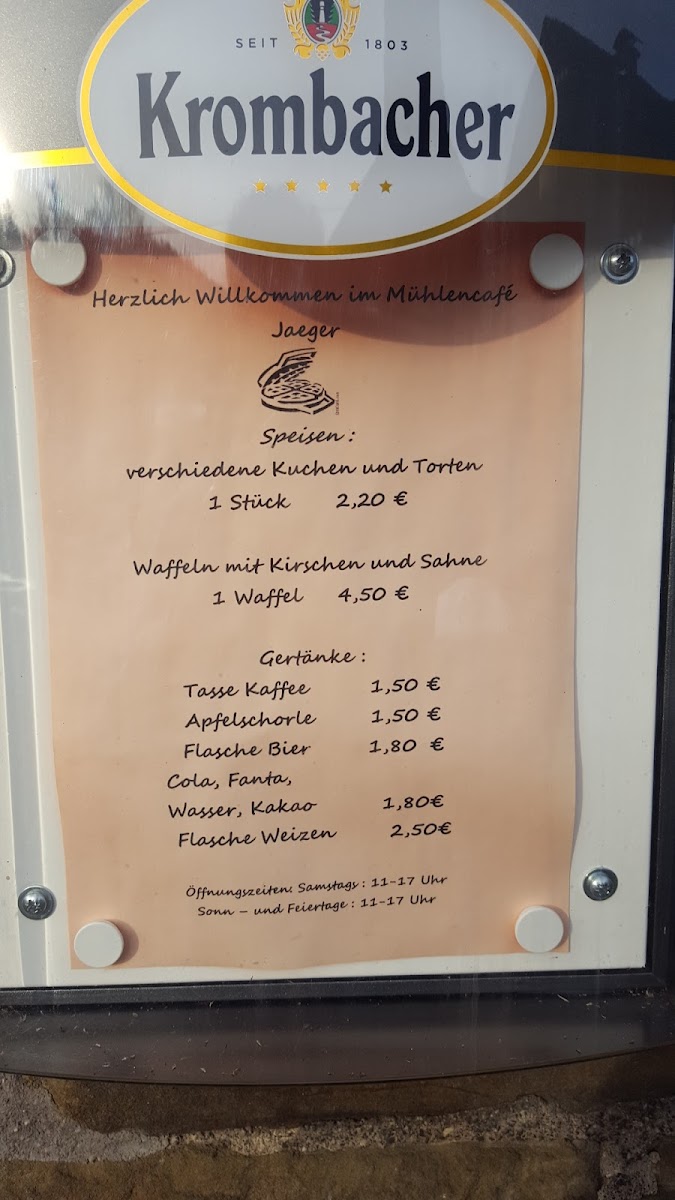 SEIT 1803
Krombacher
Herzlich Willkommen im Mühlencafé
Jaeger
Speisen :
verschiedene Kuchen und Torten
1 Stück 2,20 €
Waffeln mit Kirschen und Sahne
1 Waffel 4,50 €
Gertänke :
Tasse Kaffee 1,50 €
Apfelschorle 1,50 €
Flasche Bier 1,80 €
Cola, Fanta,
Wasser, Kakao 1,80€
Flasche Weizen 2,50€
Öffnungszeiten: Samstags : 11-17 Uhr
Sonn – und Feiertage : 11-17 Uhr